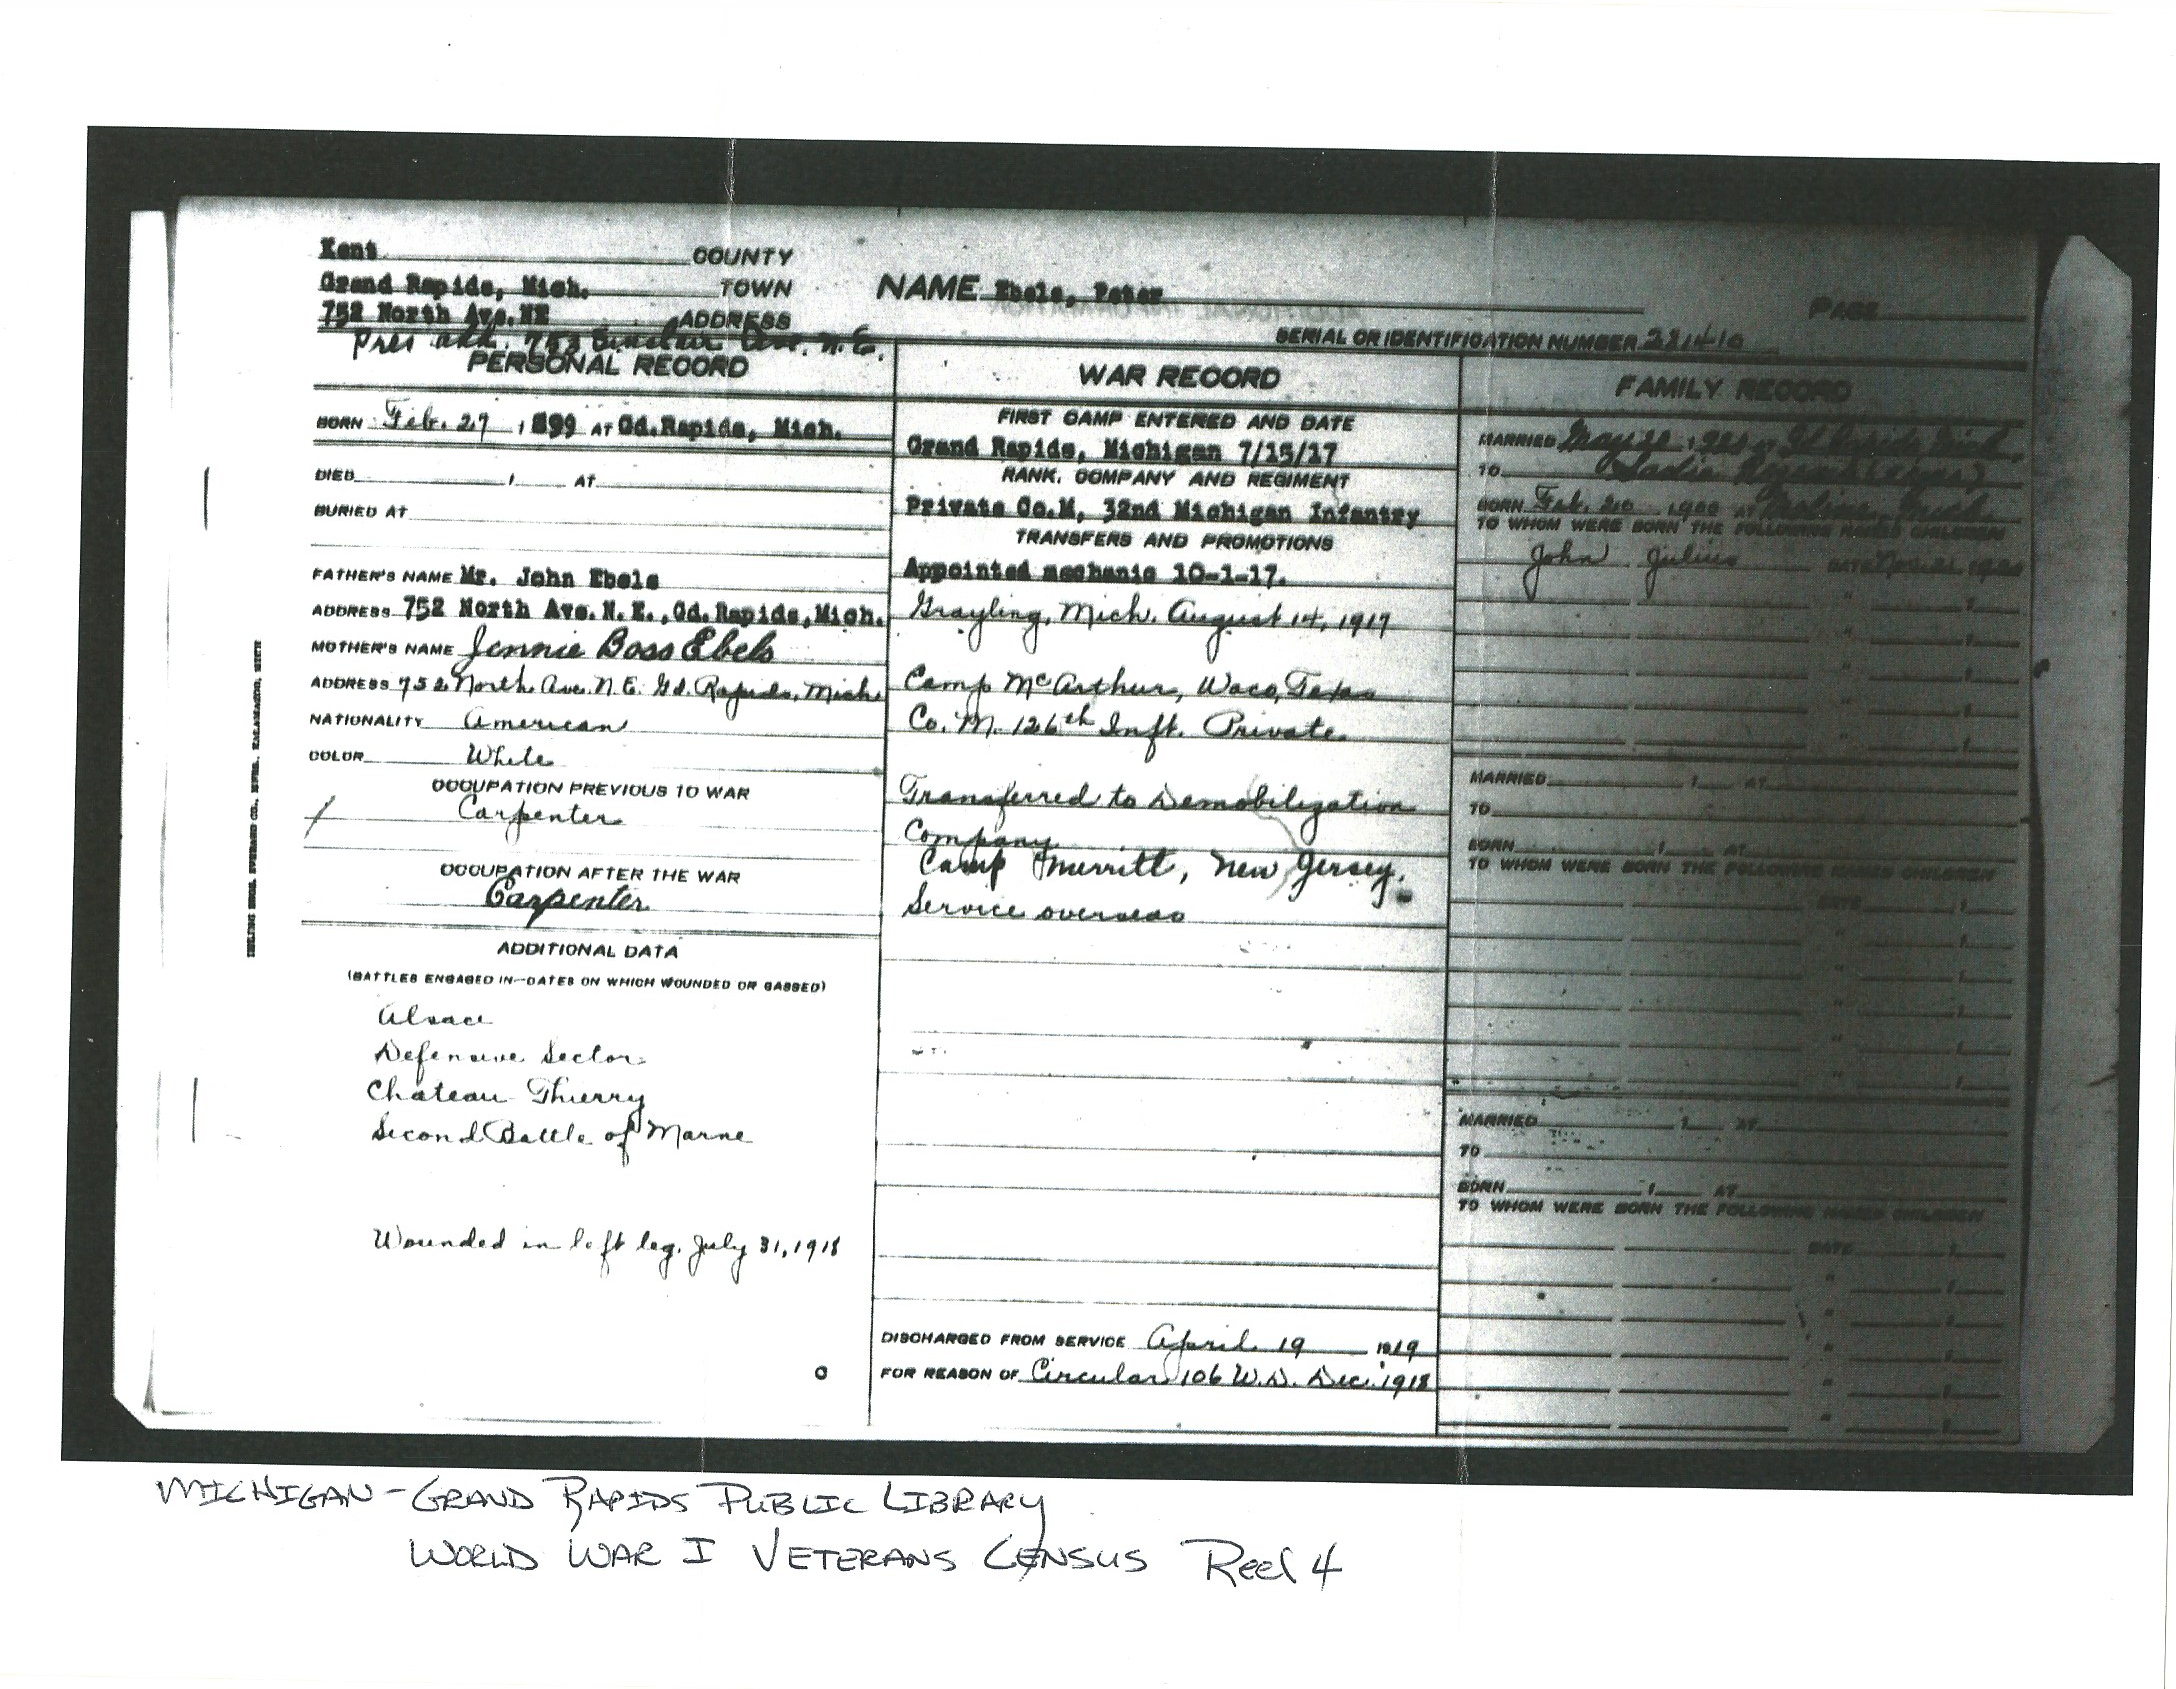 Kent COUNTY
Grand Rapids, Mich. TOWN
752 North Ave. NE ADDRESS
Pres add. 753 Sinclair Ave. N.E.
NAME Ebels, Peter
PAGE
SERIAL OR IDENTIFICATION NUMBER
PERSONAL RECORD
BORN Feb. 27, 1899 AT Gd.Rapids, Mich.
DIED , AT
BURIED AT
FATHER'S NAME Mr. John Ebels
ADDRESS 752 North Ave. N. E., Gd.Rapids, Mich.
MOTHER'S NAME Jennie Boss Ebels
ADDRESS 752 North Ave. N.E. Gd. Rapids, Mich.
NATIONALITY American
COLOR White
OCCUPATION PREVIOUS TO WAR
Carpenter
OCCUPATION AFTER THE WAR
Carpenter
ADDITIONAL DATA
(BATTLES ENGAGED IN—DATES ON WHICH WOUNDED OR GASSED)
Alsace
Defensive Sector
Chateau Thierry
Second Battle of Marne
Wounded in left leg. July 31, 1918
WAR RECORD
FIRST CAMP ENTERED AND DATE
Grand Rapids, Michigan 7/15/17
RANK, COMPANY AND REGIMENT
Private Co.M, 32nd Michigan Infantry
TRANSFERS AND PROMOTIONS
Appointed mechanic 10-1-17.
Grayling, Mich. August 14, 1917
Camp McArthur, Waco, Texas
Co. M. 126th Inft. Private.
Transferred to Demobilization
Company
Camp Merritt, New Jersey.
Service overseas
DISCHARGED FROM SERVICE April 19 1919
FOR REASON OF Circular 106 W.D. Dec. 1918
FAMILY RECORD
MARRIED May
TO Sadie
BORN Feb. 20, 1900 AT Moline, Mich.
TO WHOM WERE BORN THE FOLLOWING NAMED CHILDREN
John Julius DATE
MARRIED , AT
TO
BORN , AT
TO WHOM WERE BORN THE FOLLOWING NAMED CHILDREN
DATE
MARRIED , AT
TO
BORN , AT
TO WHOM WERE BORN THE FOLLOWING NAMED CHILDREN
DATE
MICHIGAN - GRAND RAPIDS PUBLIC LIBRARY
WORLD WAR I VETERANS CENSUS Reel 4